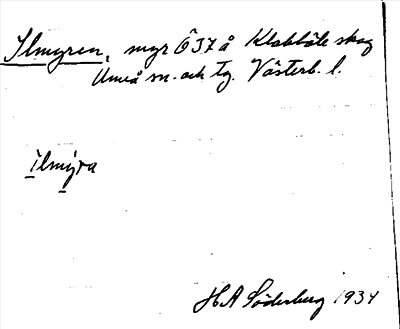 Ilmyren, myr Ö37å Klabböle skog
Umeå sn. och tg. Västerb. l.
ilmýra
H A Söderberg 1934